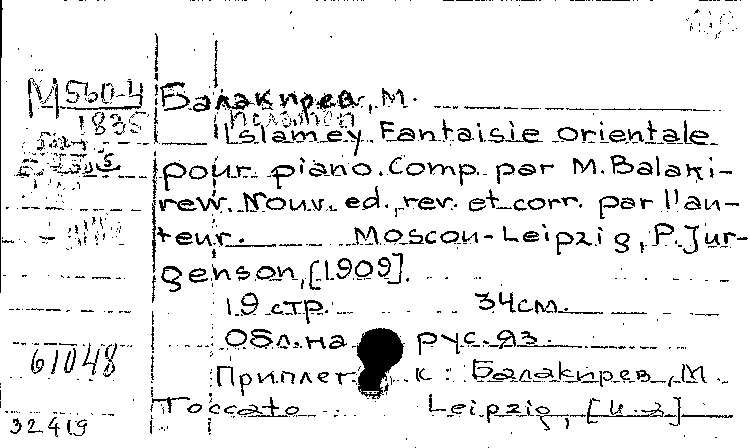 М 560-4
1835
Балакирев, М.
Исламей
Islamey Fantaisie orientale
pour piano. Comp. par M. Balaki-
rew. Nouv. ed., rev. et corr. par l'au-
teur. Moscou-Leipzig, P. Jur-
genson, [1909].
19 стр. 34 см.
Обл. на рус. яз.
Приплет к: Балакирев, М.
Toccato Leipzig, [и-а]
61048
32419